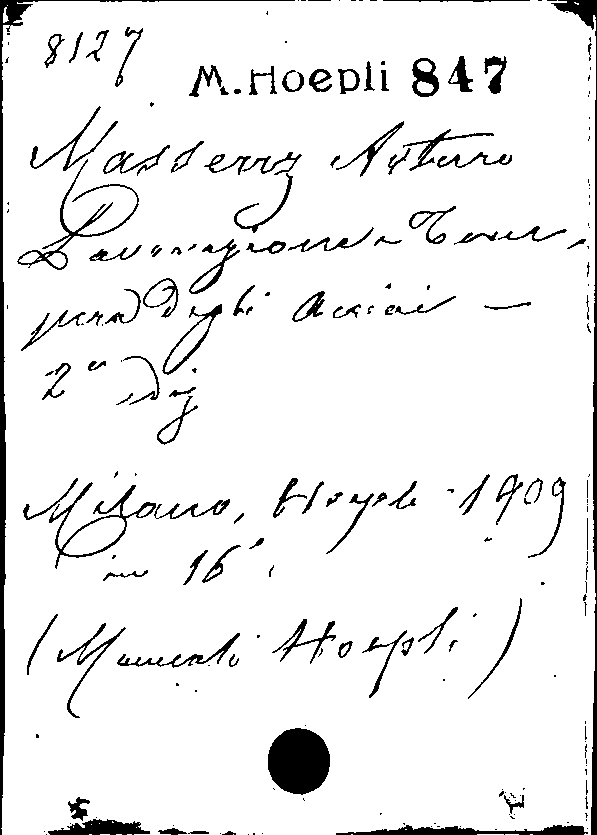 8127
M. Hoepli 847
Massenz Arturo
Lavorazione e Tem-
pera degli acciai —
2ª ediz
Milano, Hoepli - 1909
in 16°.
(Manuali Hoepli)